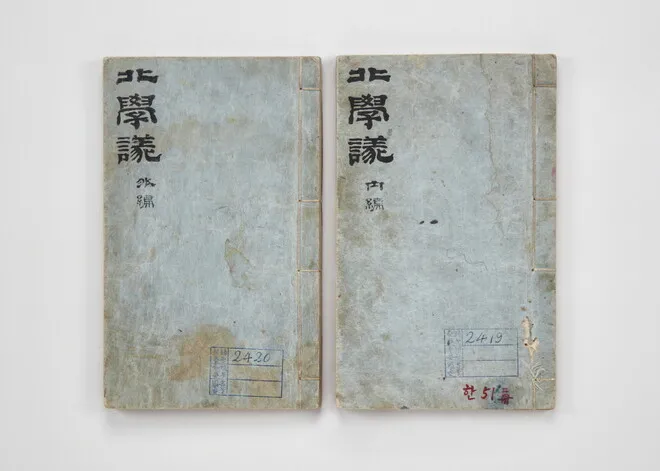 北學議
外編
2420
北學議
內編
2419
한 51